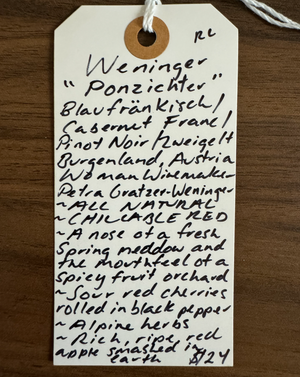 RL
Weninger
"Ponzichter"
Blaufränkisch/
Cabernet Franc/
Pinot Noir/Zweigelt
Burgenland, Austria
Woman Winemaker-
Petra Gratzer-Weninger
~ALL NATURAL
~CHILLABLE RED
~A nose of a fresh
Spring meddow and
the mouthfeel of a
spicy fruit orchard
~Sour red cherries
rolled in black pepper
~Alpine herbs
~Rich, ripe red
apple smashed in
earth $24